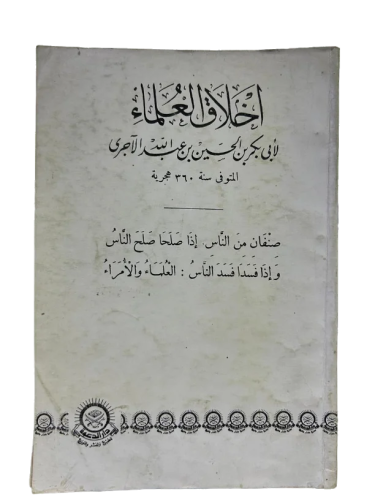 أخلاق العلماء
لأبي بكر بن الحسين بن عبد الله الآجري
المتوفى سنة ٣٦٠ هجرية
صِنْفَانِ مِنَ النَّاسِ. إِذَا صَلَحَا صَلَحَ النَّاسُ
وَإِذَا فَسَدَا فَسَدَ النَّاسُ : الْعُلَمَاءُ وَالْأُمَرَاءُ
دار الدعوة